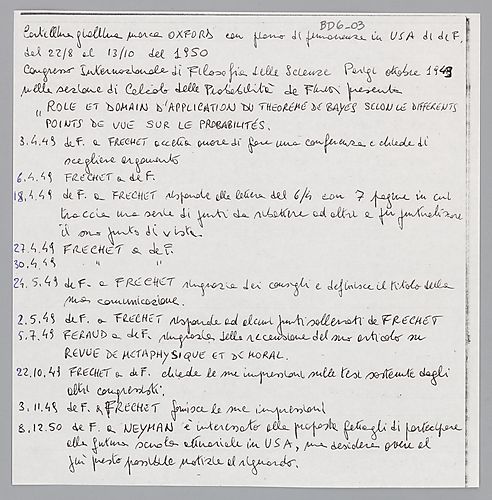 BD6-03
Cartellina giallina marca OXFORD con piano di permanenza in USA di de F.
dal 22/8 al 13/10 del 1950
Congresso Internazionale di Filosofia delle Scienze Parigi ottobre 1949
nella sezione di Calcolo delle Probabilità de F. presenta
"ROLE ET DOMAIN D'APPLICATION DU THEOREME DE BAYES SELON LE DIFFÉRENTS
POINTS DE VUE SUR LE PROBABILITÉS.
3.4.49 de F. a FRECHET accetta onore di fare una conferenza e chiede di
scegliere argomento
6.4.49 FRECHET a de F.
18.4.49 de F. a FRECHET risponde alla lettera del 6/4 con 7 pagine in cui
traccia una serie di punti da ribattere ad altri e per puntualizzare
il suo punto di vista.
27.4.49 FRECHET a de F.
30.4.49 " "
24.5.49 de F. a FRECHET ringrazia dei consigli e definisce il titolo della
sua comunicazione.
2.5.49 de F. a FRECHET risponde ad alcuni punti sollevati da FRECHET
5.7.49 FERAUD a de F. ringrazia della recensione del suo articolo su
REVUE DE METAPHYSIQUE ET DE MORAL.
22.10.49 FRECHET a de F. chiede le sue impressioni sulle tesi sostenute dagli
altri congressisti.
3.11.49 de F. a FRECHET fornisce le sue impressioni
8.12.50 de F. a NEYMAN è interessato alla proposta di partecipare
alla futura scuola attuariale in USA, ma desidera avere al
più presto possibile notizie al riguardo.